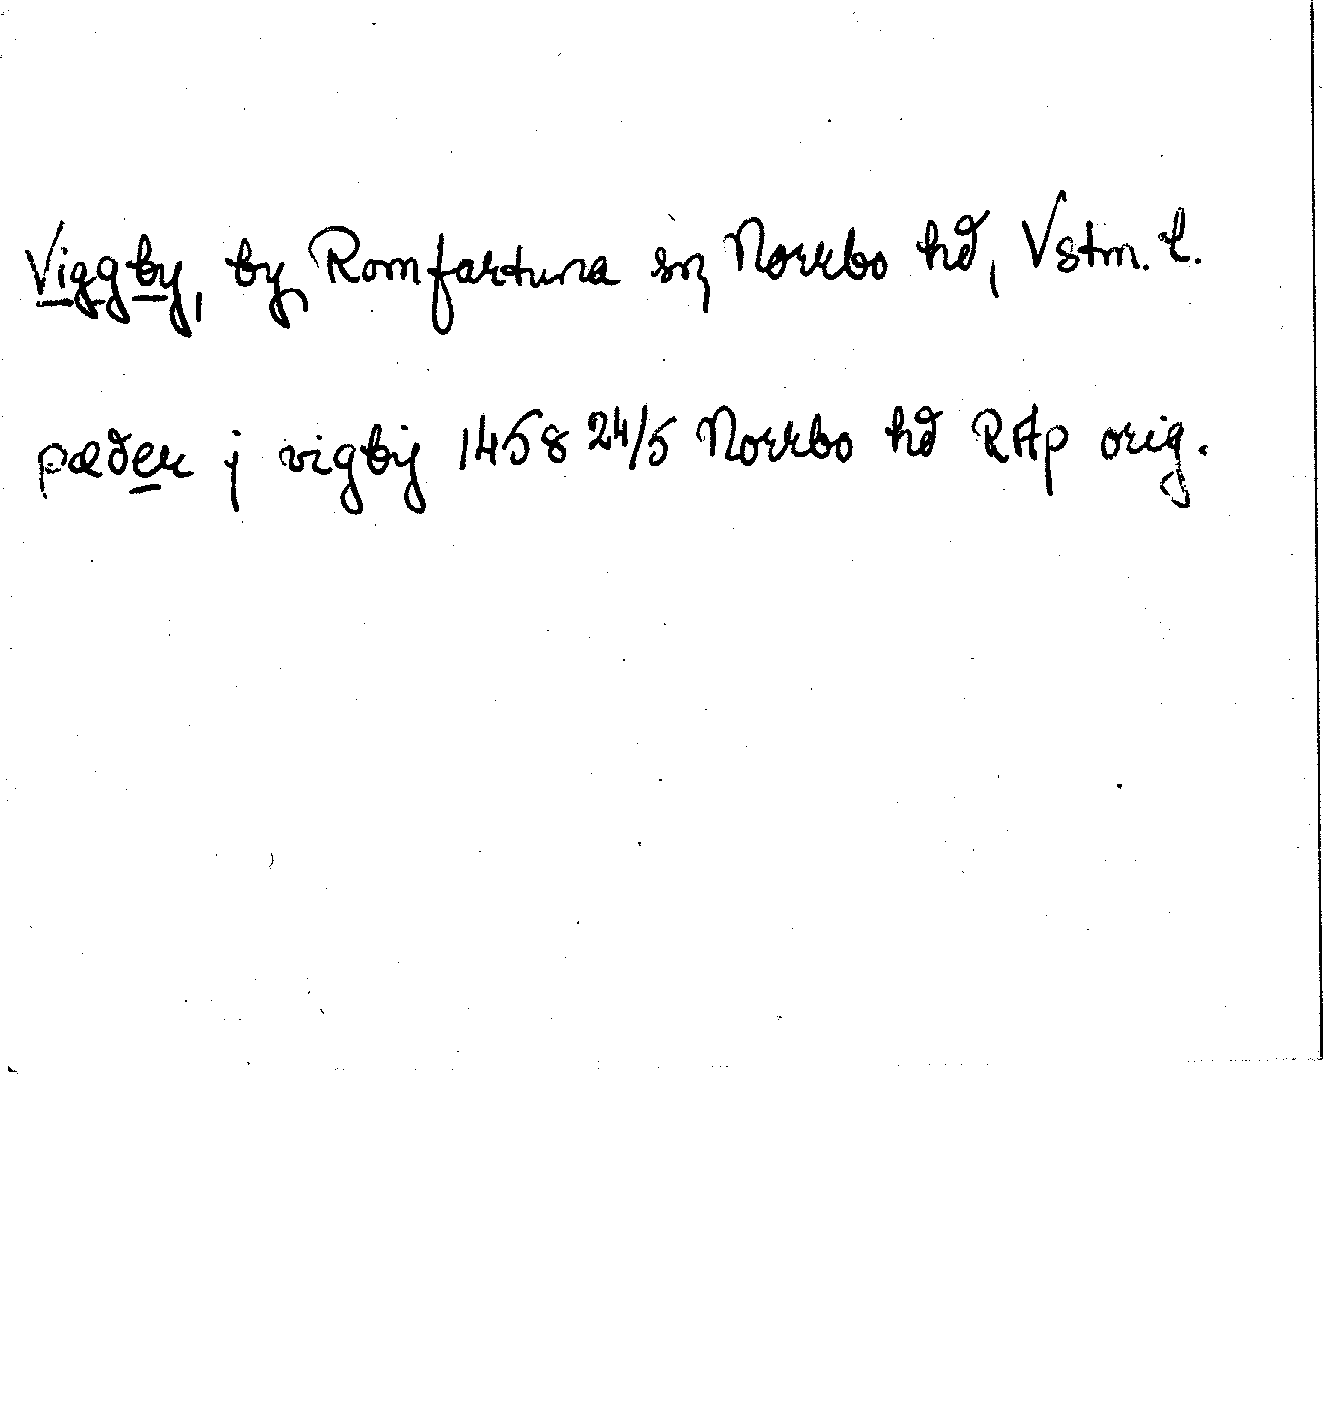 Viggby, by, Romfartuna sn, Norrbo hd, Vstm. l.
pæder j vigbÿ 1458 24/5 Norrbo hd RAp orig.